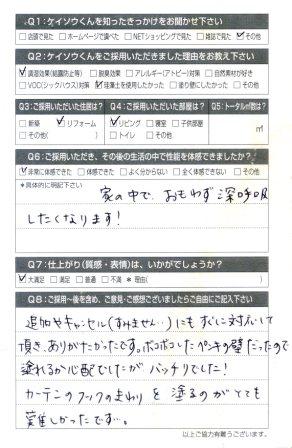 Q1：ケイソウくんを知ったきっかけをお聞かせ下さい
□店頭で見た □ホームページで調べた □NETショッピングで見た □雑誌で見た ☑その他
Q2：ケイソウくんをご採用いただきました理由をお教え下さい
☑調湿効果(結露防止等) □脱臭効果 □アレルギー(アトピー)対策 □自然素材が好き
□VOC(シックハウス)対策 ☑珪藻土を使用したかった □塗り壁にしたかった □その他
Q3：ご採用いただいた住居は？ Q4：ご採用いただいた部屋は？ Q5：トータル㎡数は？
□新築 ☑リフォーム ☑リビング □寝室 □子供部屋
□その他( ) □トイレ □その他 ㎡
Q6：ご採用いただき、その後の生活の中で性能を体感できましたか？
☑非常に体感できた □体感できた □よく分からない □全く体感できない □その他
*具体的に明記下さい
家の中で、おもわず深呼吸
したくなります！
Q7：仕上がり(質感・表情)は、いかがでしょうか？
☑大満足 □満足 □普通 □不満 *理由( )
Q8：ご採用〜後を含め、ご意見・ご感想ございましたらご自由にご記入下さい
追加やキャンセル(すみません…)にもすぐに対応して
頂き、ありがたかったです。ボコボコしたペンキの壁だったので
塗れるか心配でしたがバッチリでした！
カーテンのフックのまわりを塗るのがとても
難しかったです…。
以上ご協力有難うございます。